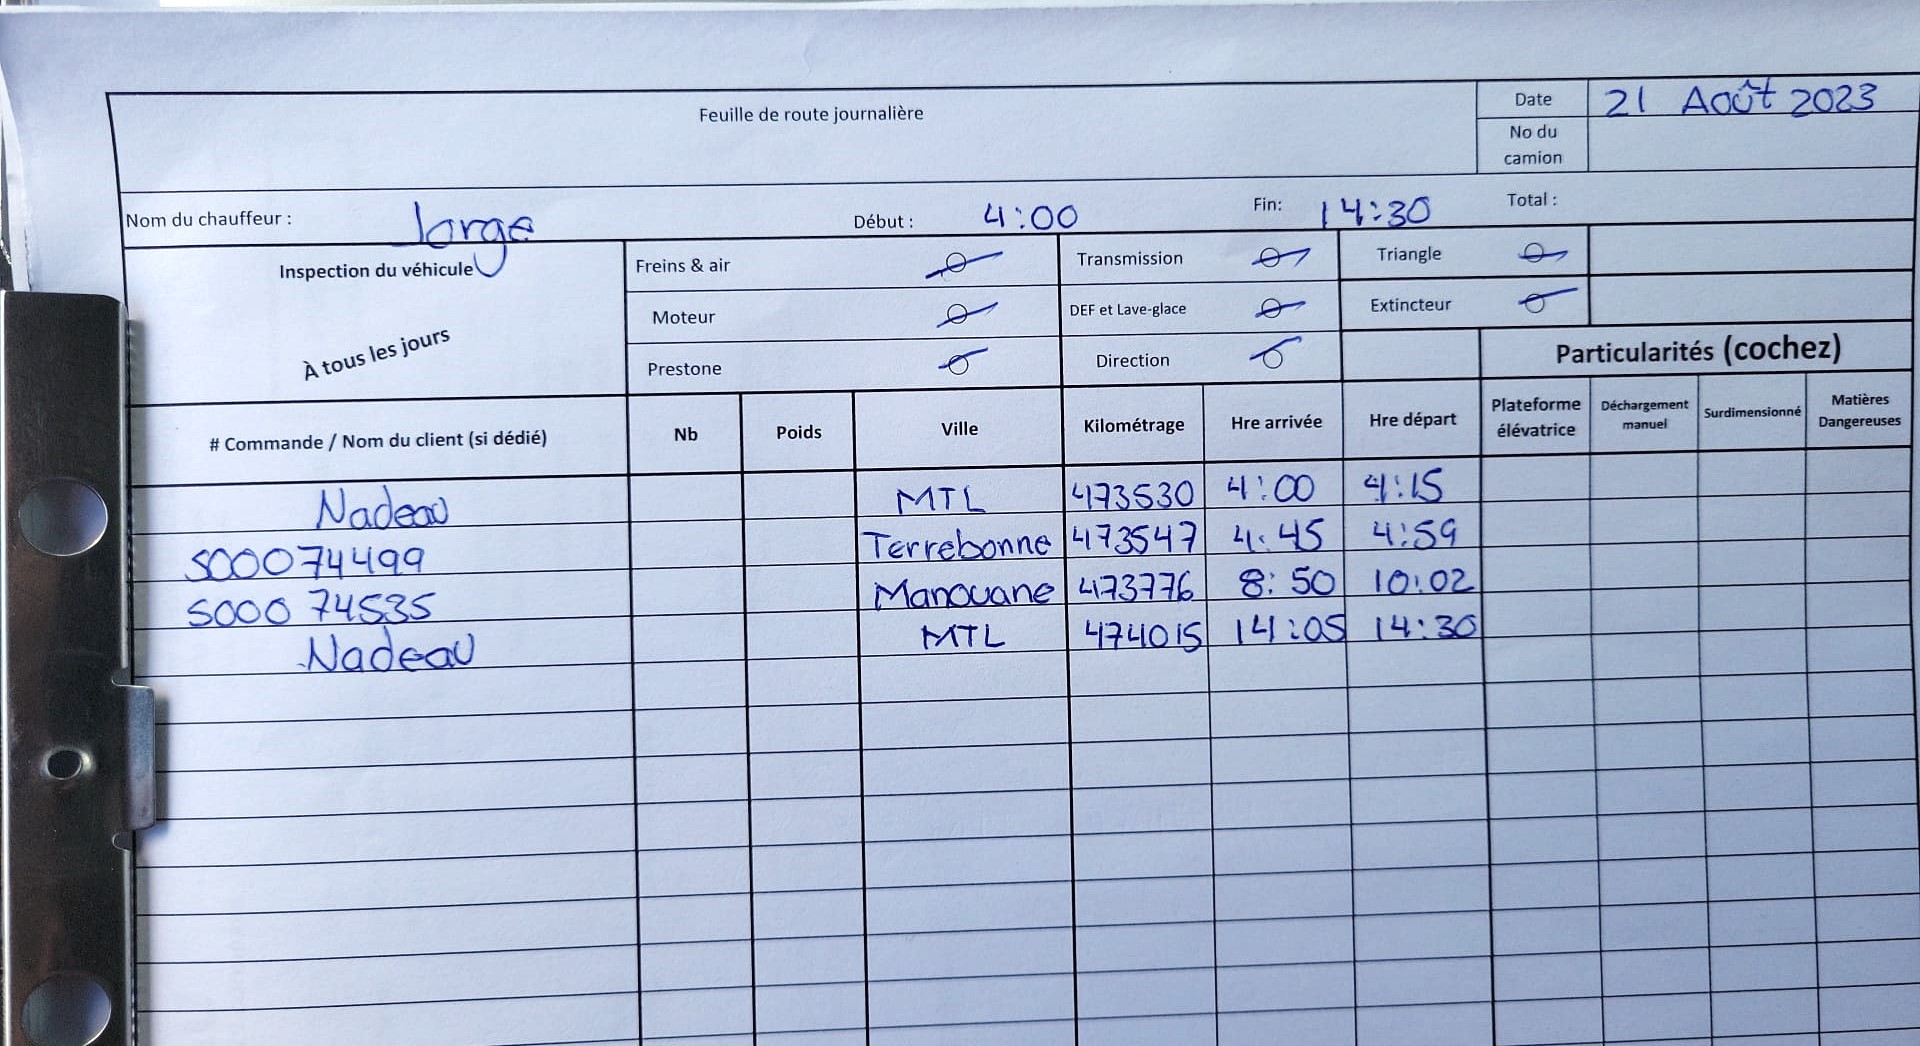 Feuille de route journalière
Date 21 Août 2023
No du camion
Nom du chauffeur : Jorge Début : 4:00 Fin: 14:30 Total :
Inspection du véhicule
À tous les jours
Freins & air Transmission Triangle
Moteur DEF et Lave-glace Extincteur
Prestone Direction
Particularités (cochez)
# Commande / Nom du client (si dédié) Nb Poids Ville Kilométrage Hre arrivée Hre départ Plateforme élévatrice Déchargement manuel Surdimensionné Matières Dangereuses
Nadeau MTL 473530 4:00 4:15
S00074499 Terrebonne 473547 4:45 4:59
S000 74535 Manouane 473776 8:50 10:02
Nadeau MTL 474015 14:05 14:30